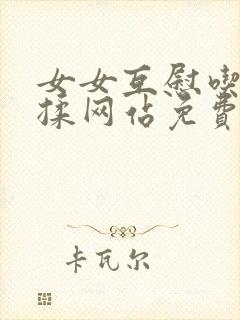 女女互慰喫
揉网佔免費
卡瓦尔